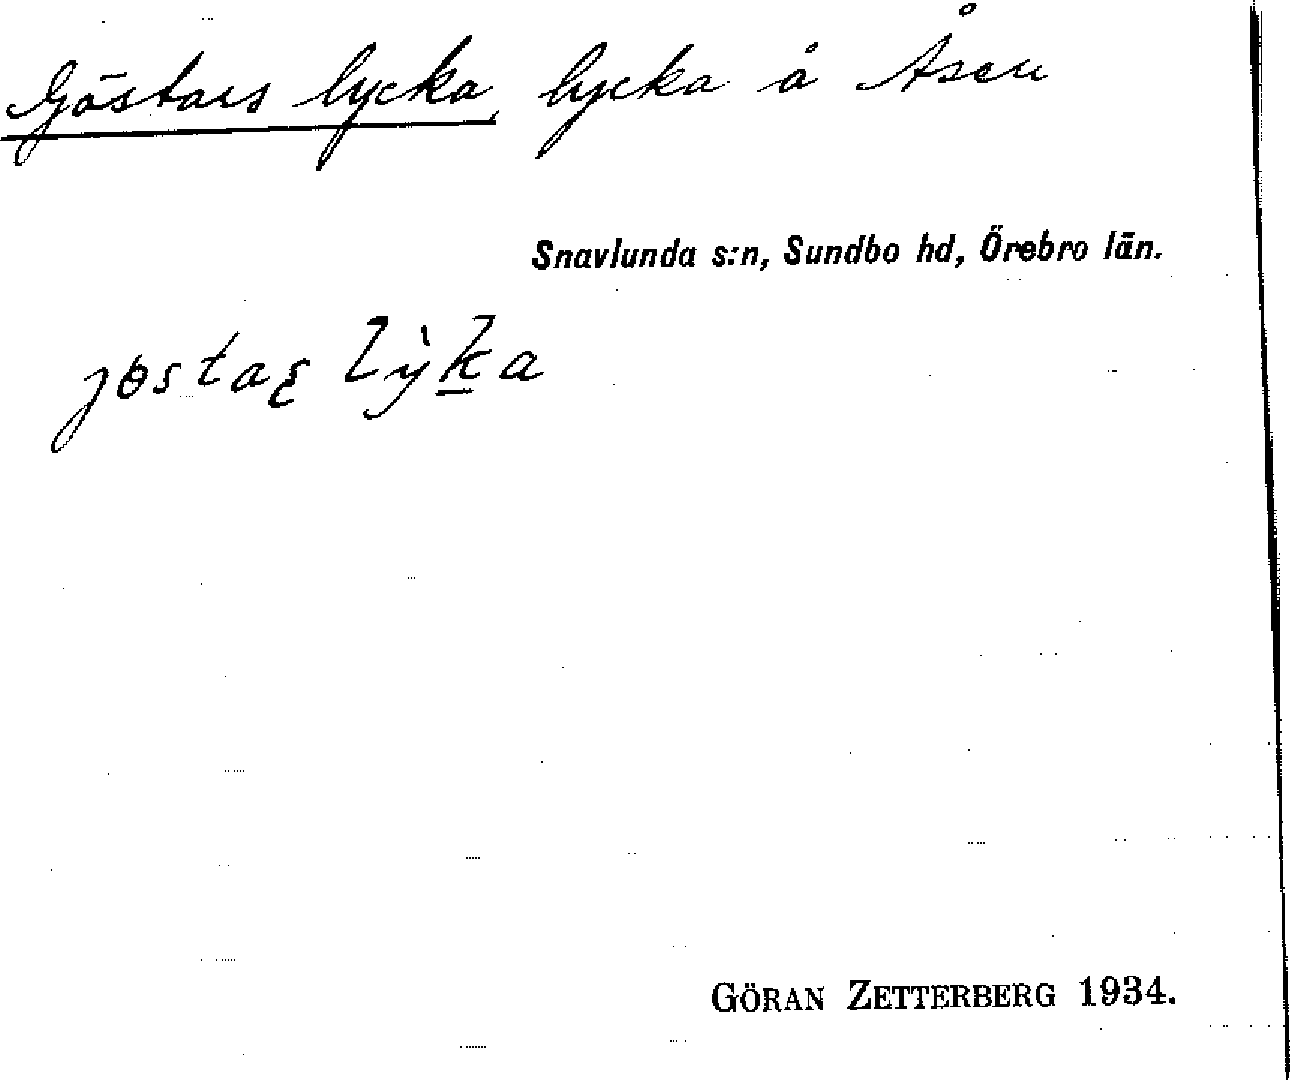 Göstars lycka, lycka å Åsen
Snavlunda s:n, Sundbo hd, Örebro län.
GÖRAN ZETTERBERG 1934.